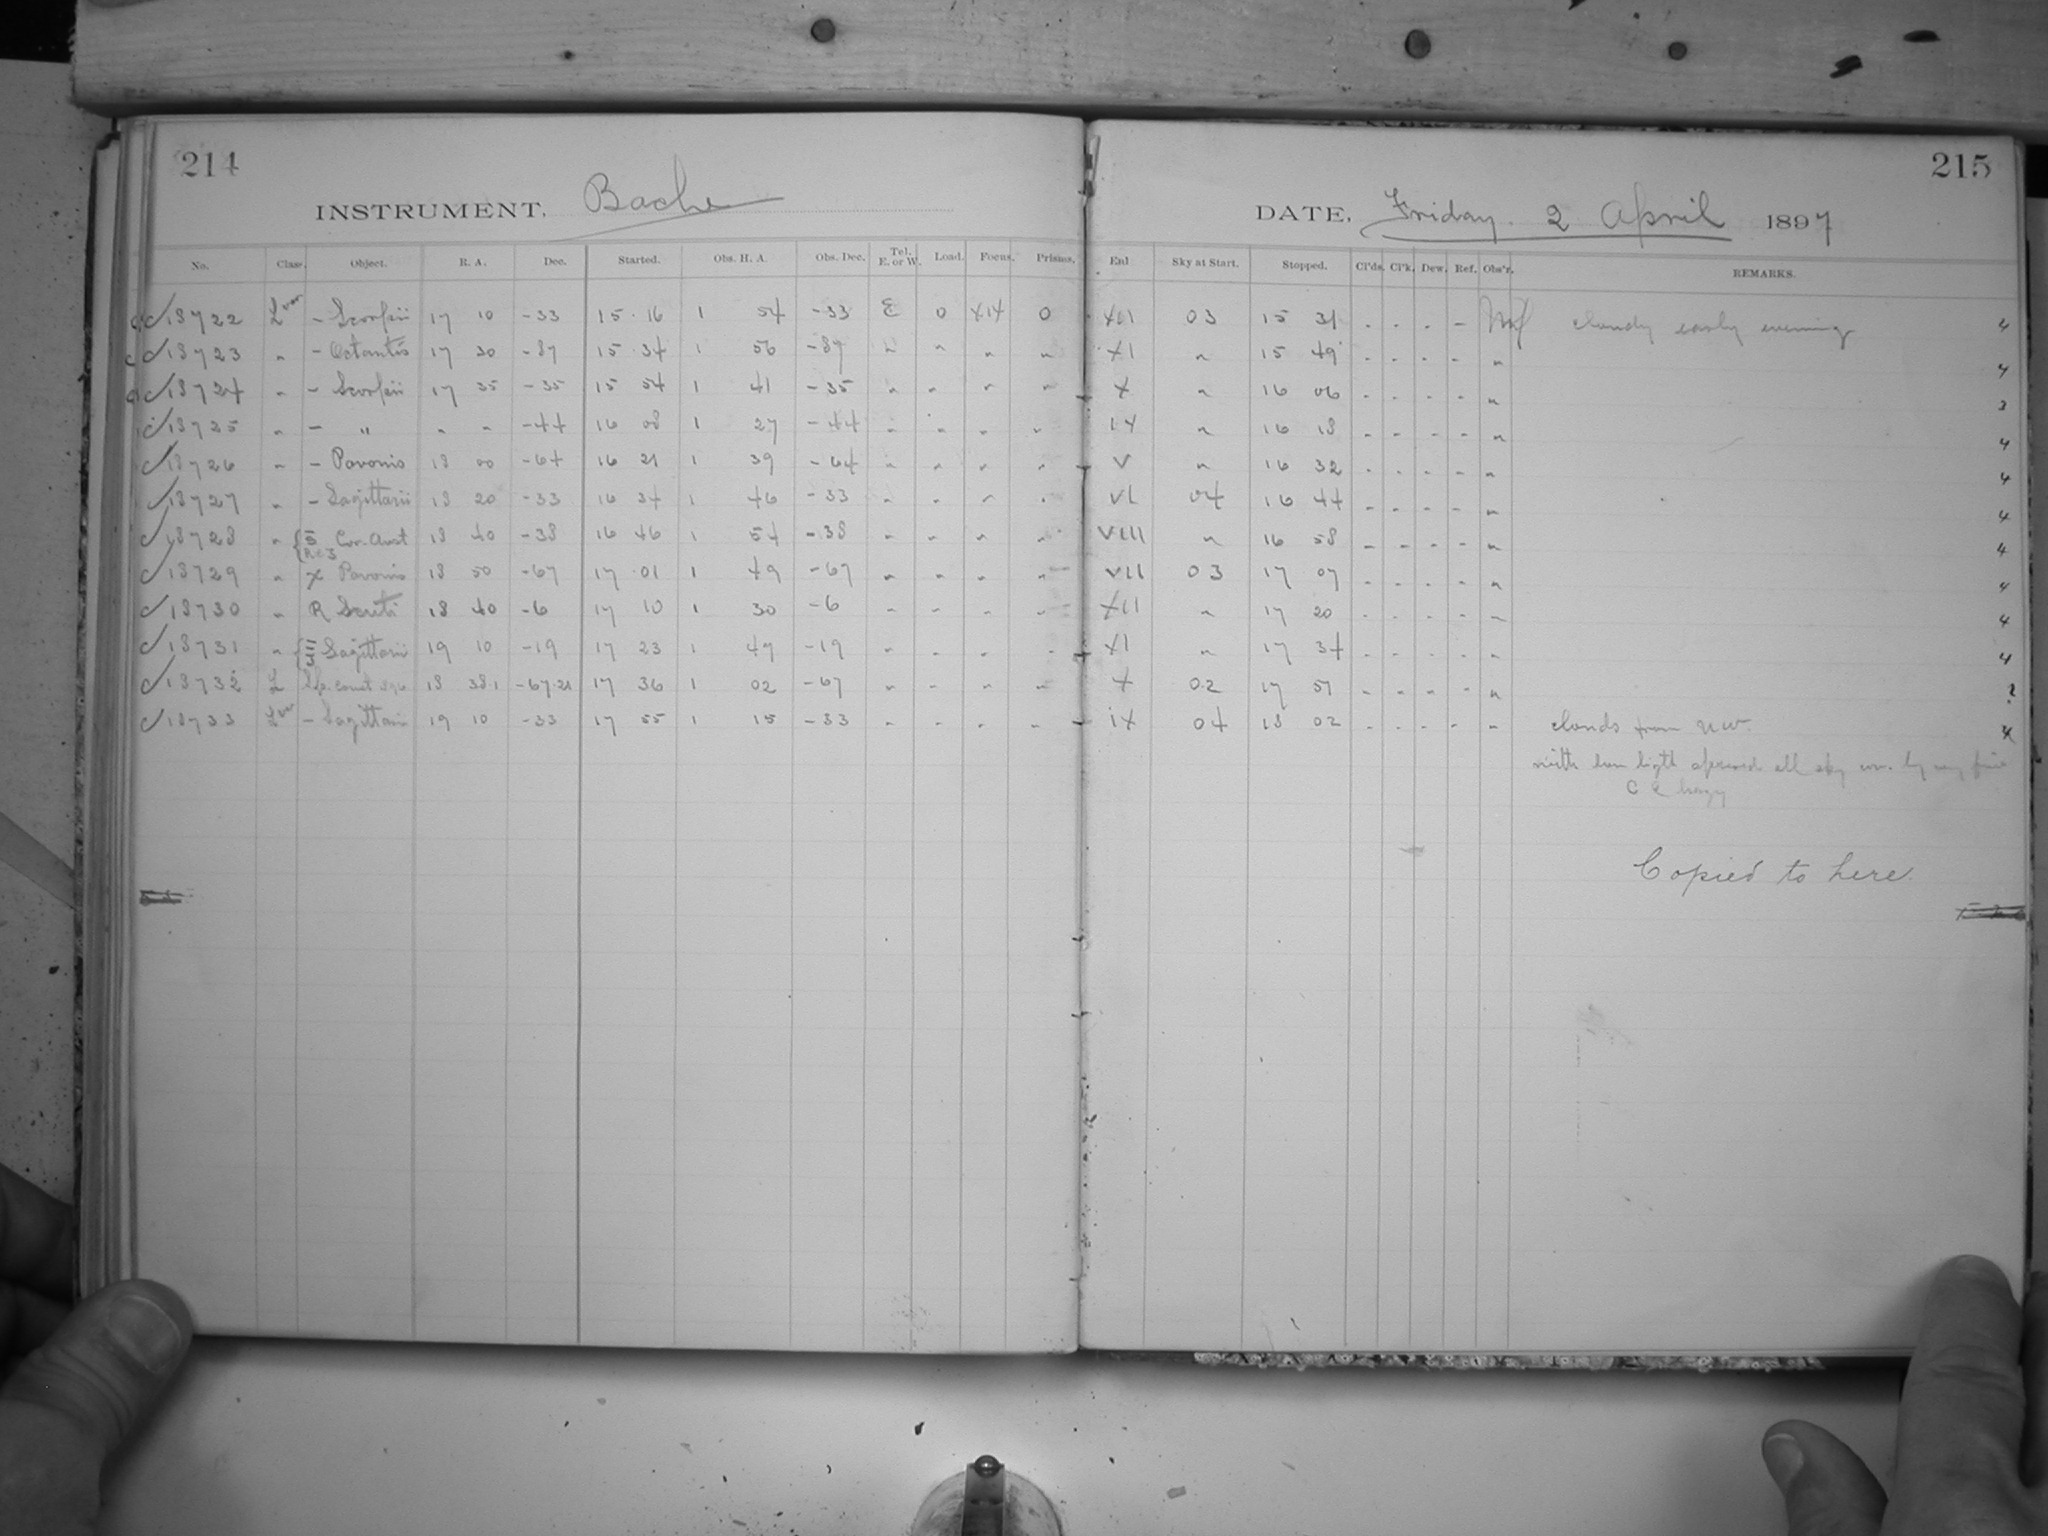 214
INSTRUMENT, Bache
No. Class. Object. R. A. Dec. Started. Obs. H. A. Obs. Dec. Tel. E. or W. Load. Focus. Prisms.
✓ 18722 L var - Scorpii 17 10 -33 15 16 1 54 -33 E 0 XIV 0
✓ 18723 " - Octantis 17 30 -87 15 34 1 56 -87 " " " "
✓ 18724 " - Scorpii 17 35 -35 15 54 1 41 -35 " " " "
✓ 18725 " - " " " -44 16 08 1 27 -44 " " " "
✓ 18726 " - Pavonis 18 00 -64 16 21 1 39 -64 " " " "
✓ 18727 " - Sagittarii 18 20 -33 16 34 1 46 -33 " " " "
✓ 18728 " Cor. Aust 18 40 -38 16 46 1 54 -38 " " " "
✓ 18729 " Pavonis 18 50 -67 17 01 1 49 -67 " " " "
✓ 18730 " R Scuti 18 40 -6 17 10 1 30 -6 " " " "
✓ 18731 " Sagittarii 19 10 -19 17 23 1 47 -19 " " " "
✓ 18732 L 18 38.1 -67.21 17 36 1 02 -67 " " " "
✓ 18733 L var - Sagittarii 19 10 -33 17 55 1 15 -33 " " " "
215
DATE, Friday 2 April 1897
Enl Sky at Start. Stopped. Cl'ds. Cl'k. Dew. Ref. Obs'r. REMARKS.
XII 03 15 31 - - - - cloudy early evening 4
XI " 15 49 - - - - " 4
X " 16 06 - - - - " 3
IX " 16 18 - - - - " 4
V " 16 32 - - - - " 4
VI 04 16 44 - - - - " 4
VIII " 16 58 - - - - " 4
VII 03 17 07 - - - - " 4
XII " 17 20 - - - - " 4
XI " 17 34 - - - - " 4
X 02 17 51 - - - - " 2
IX 04 18 02 - - - - " clouds from NW. 4
all sky
hazy
Copied to here